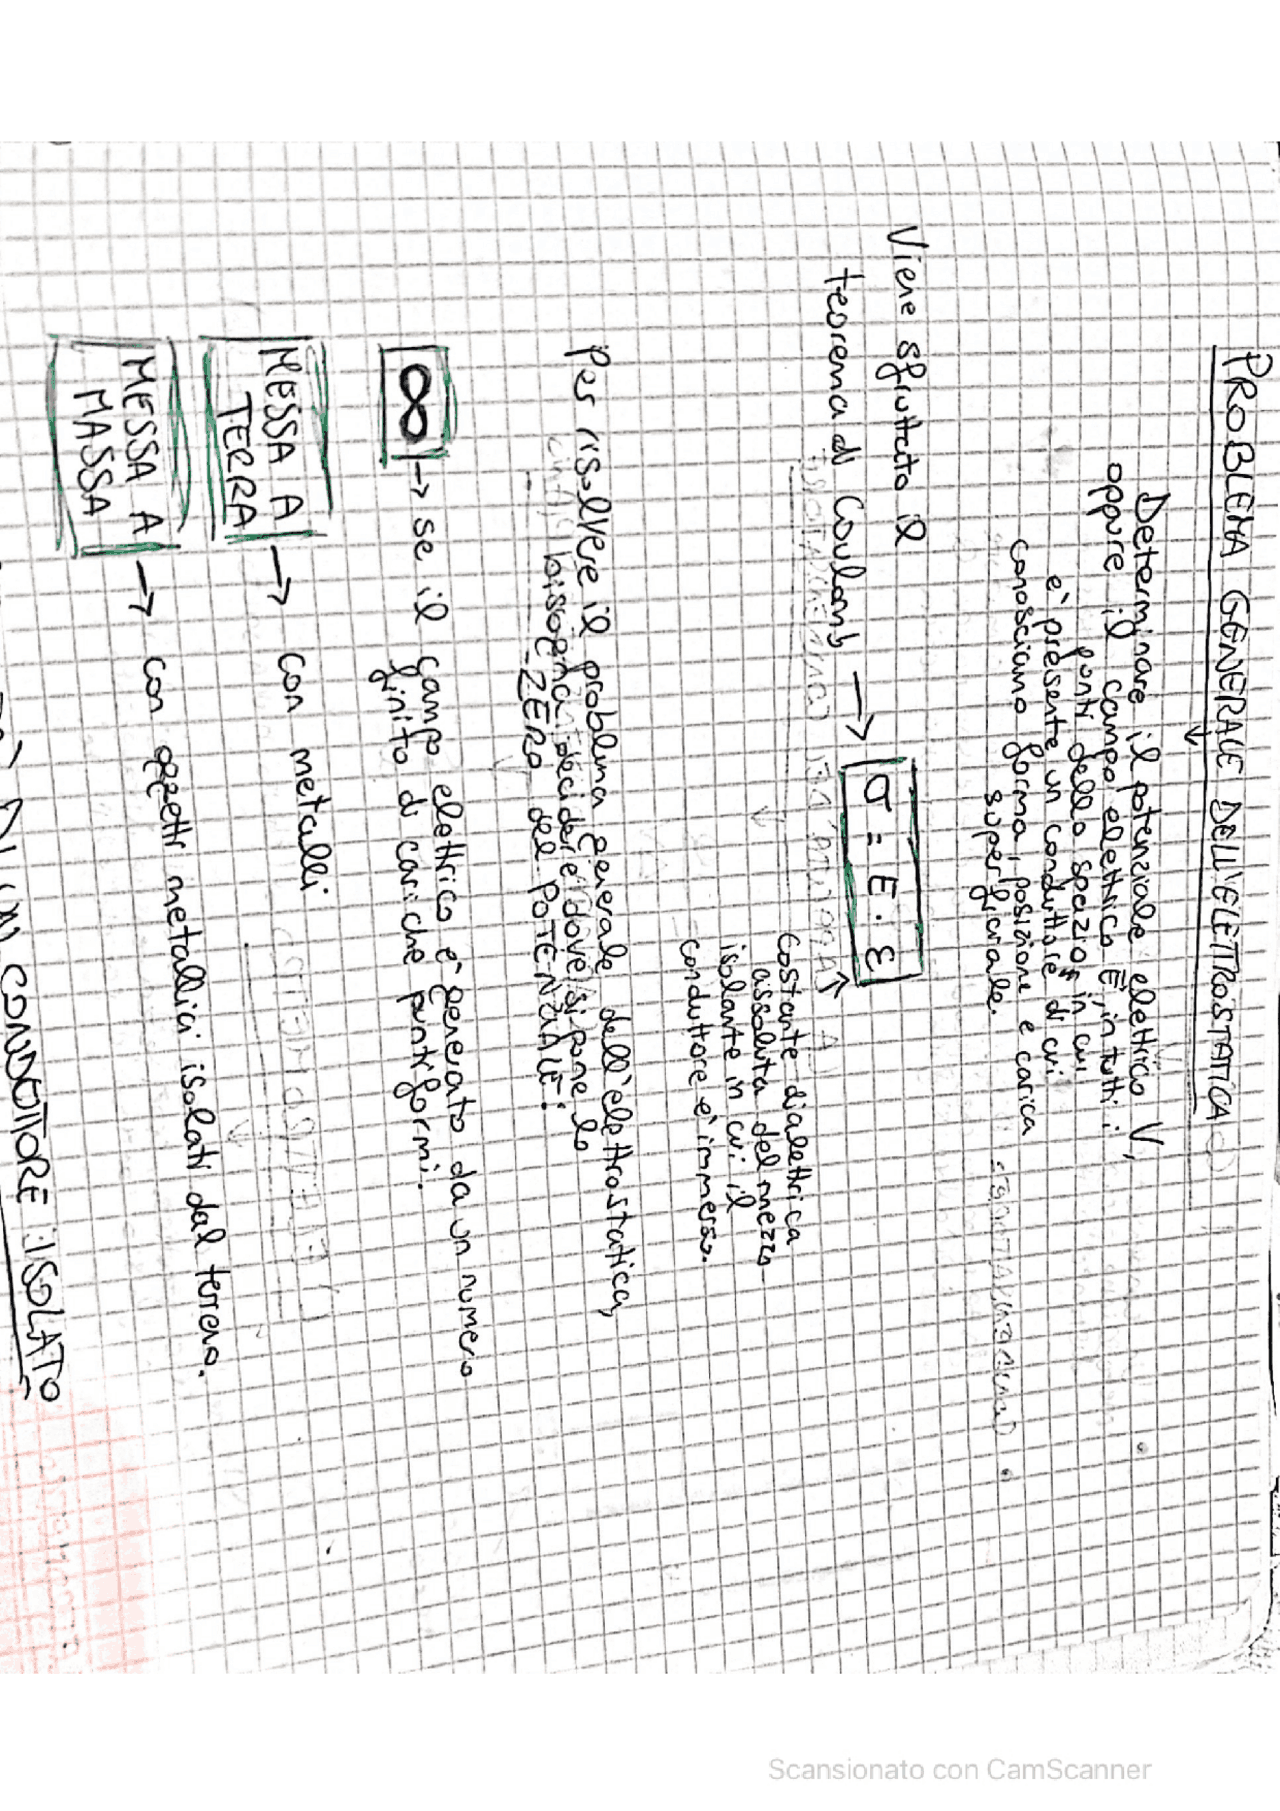 PROBLEMA GENERALE DELL'ELETTROSTATICA
↓
Determinare il potenziale elettrico V,
oppure il campo elettrico E, in tutti i
punti dello spazio in cui
e' presente un conduttore di cui
conosciamo forma, posizione e carica
superficiale.
Viene sfruttato il
teorema di Coulomb → σ = E · ε
Costante dialettrica
assoluta del mezzo
isolante in cui il
conduttore e' immerso.
Per risolvere il problema generale dell'elettrostatica,
bisogna decidere dove si pone lo
ZERO del POTENZIALE:
∞ → se il campo elettrico e' generato da un numero
finito di cariche puntiformi.
MESSA A
TERRA → con metalli
MESSA A
MASSA → con oggetti metallici isolati dal terreno.
DI UN CONDUTTORE ISOLATO
Scansionato con CamScanner